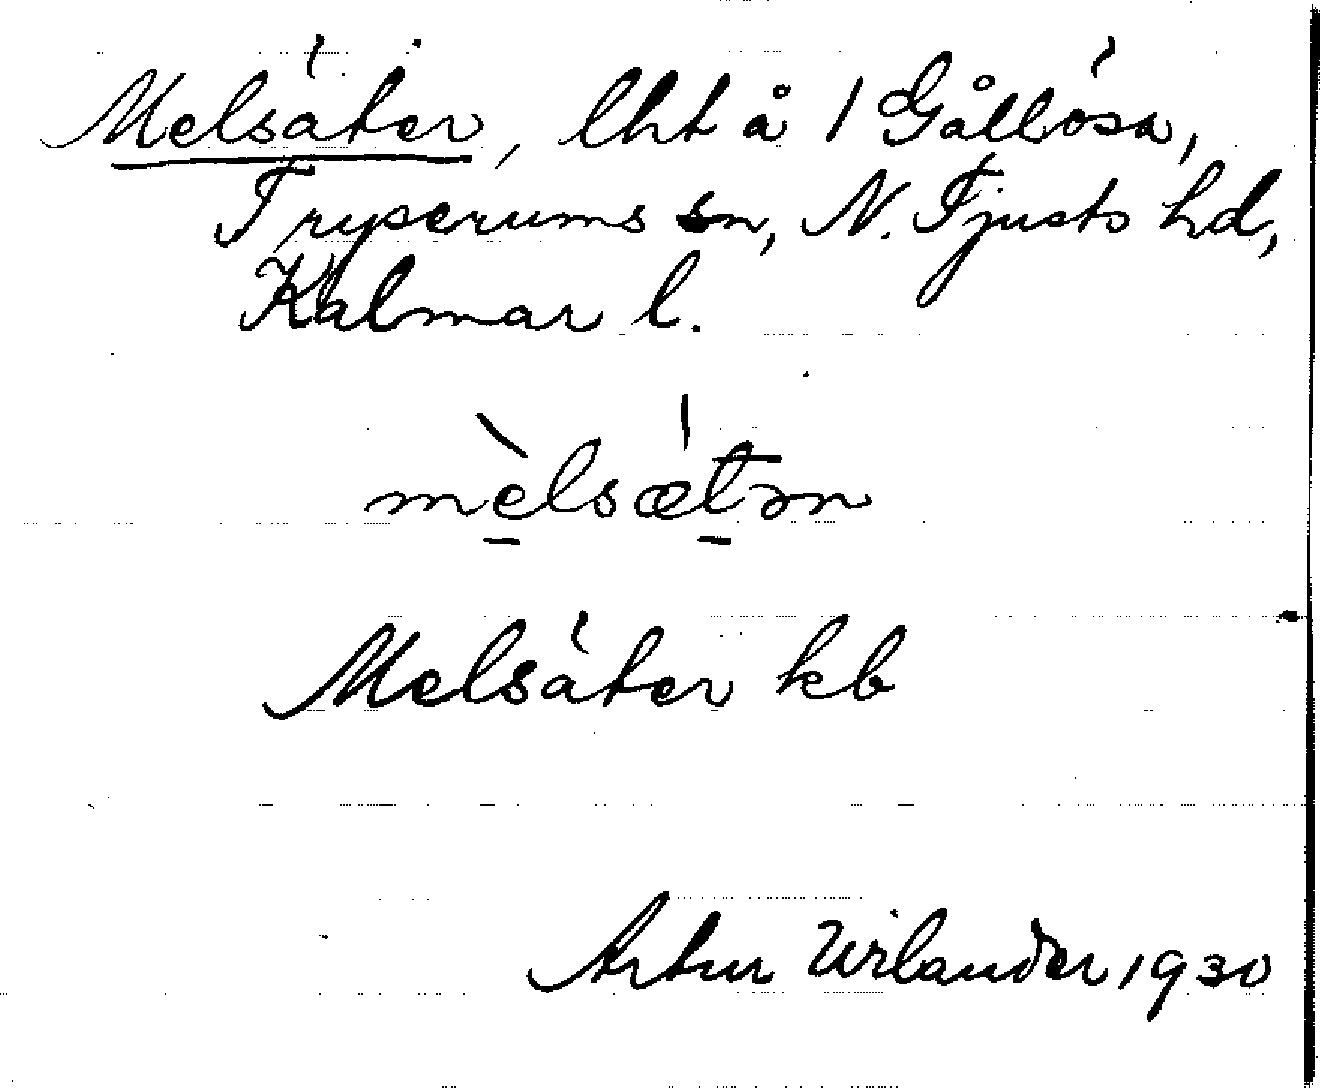 Melsäter, lht å 1 Gållösa,
Tryserums sn, N. Tjusts hd,
Kalmar l.
mèlsǽtər
Melsäter kb
Artur Wilander 1930